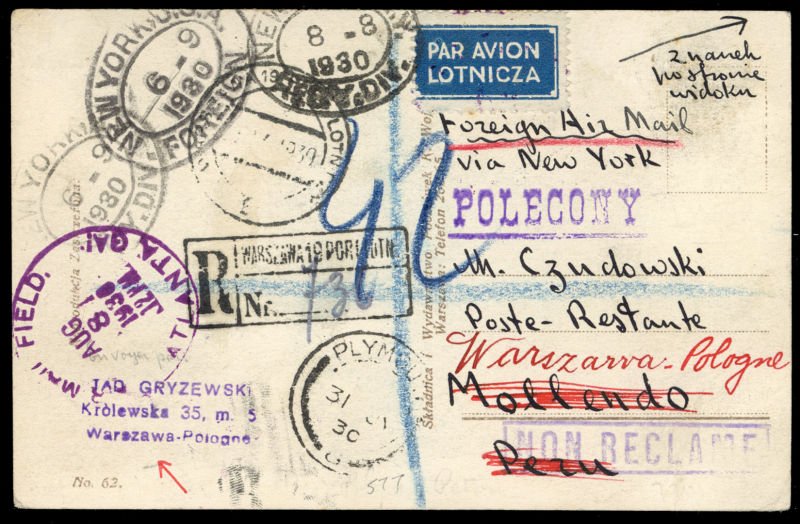 NEW YORK, U.S.A.
6 - 9
1930
FOREIGN
8 - 8
1930
6 - 9
1930
PAR AVION
LOTNICZA
znaczek
po stronie
widoku
Foreign Air Mail
via New York
POLECONY
42
R
WARSZAWA 19 PORT LOTN.
Nr.
M. Czudowski
Poste-Restante
Warszawa-Pologne
Mollendo
Peru
NON RECLAME
FIELD,
ATLANTA, GA.
AUG
8
1930
PLYM
31
30
JAD GRYZEWSKI
Królewska 35, m. 5
Warszawa-Pologne
No. 62.
577